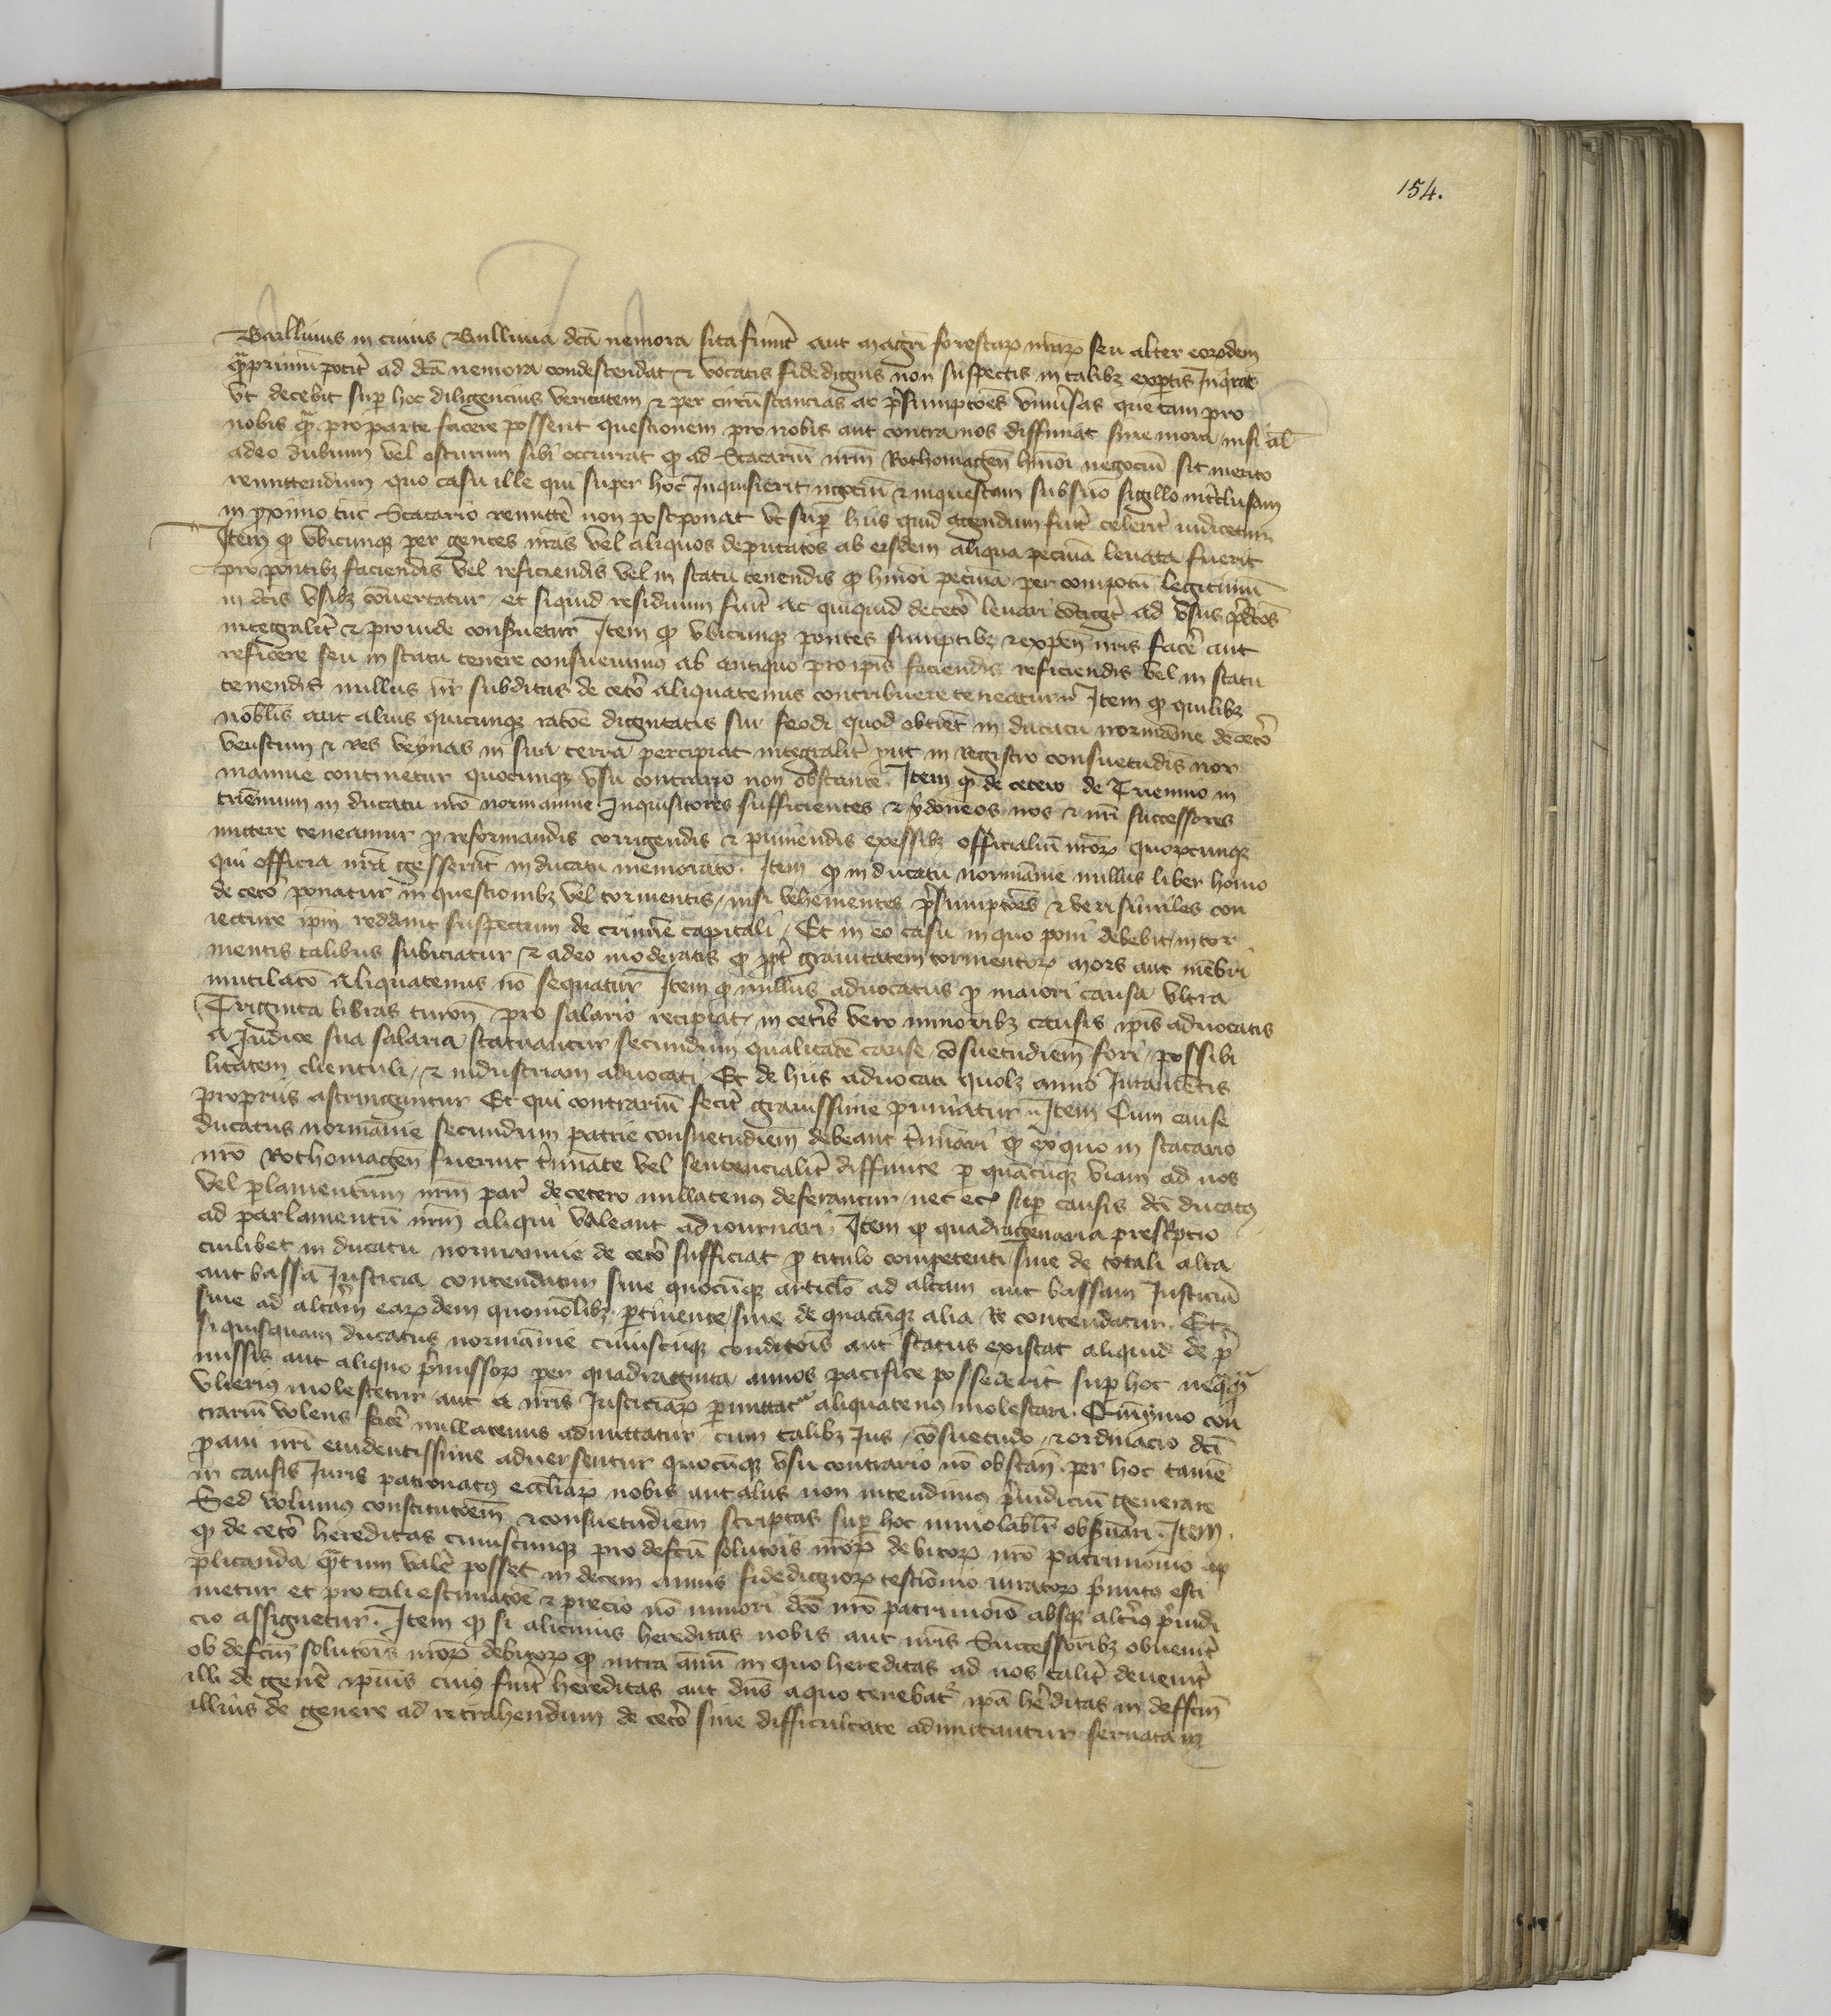 154.
Baillivus in cuius Baillivia dcā nemora sita fuerit aut magrī forestaꝝ nrāꝝ seu alter eorōdem
qᵃprimū poterit ad dcā nemora condescendat ⁊ vocatis fidedignis non suspectis in talibꝫ exp̱tis Inqͥrat
Vt decebit suꝑ hoc diligencius veritatem ⁊ per circūstancias ac p̄sumptōes vniūsas que tam pro
nobis qᵃ pro parte facere possent questionem pro nobis aut contra nos diffiniat sine mora / nisi
adeo dubium vel obscurum sibi occurrat qꝫ ad Scacariū nrm̄ Rothomagen̄ hmōi negociū sit merito
remittendum quo casu ille qui super hoc Inquisierit negociū ⁊ inquestam sub suo sigillo int̄clusam
in ꝓximo tūc Scacario remitte᷒ non postponat vt suꝑ hiis quid agendum fuit̄ celerit̄ iudicetur
Item qꝫ vbicunqꝫ per gentes nrās vel aliquos deputatos ab eisdem aliqua pecunia leuata fuerit
pro pontibꝫ faciendis vel reficiendis vel in statu tenendis qꝫ hmōi pecūia per compotū legitimū
in dcīs vsibꝫ cōuertatur / et siquid residuum fuit̄ ac quicquid de cetō leuari cōtigit̄ ad vsus p̄dcōs
integralit̄ ⁊ proinde conseruetur Item qꝫ vbicunqꝫ pontes sumptibꝫ ⁊ expen̄ nrīs face᷒ aut
reficere seu in statu tenere consueuimus ab antiquo pro ip̄is faciendis reficiendis vel in statu
tenendis nullus nr̄ subditus de cetō aliquatenus contribuere teneatur Item qꝫ quilibꝫ
nobilis aut alius quicunqꝫ ratōe dignitatis siue feodi quod obtin̄et in ducatu normānie de cetō
veustum ⁊ res veyuas in sua terra percipiat integralit̄ ꝓut in Registro consuetudīs nor
mannie continetur quocunqꝫ vsu contrario non obstante. Item qꝫ de cetero de Triennio in
triennium in ducatu nrō normannie Inquisitores sufficientes ⁊ ydoneos nos ⁊ nrī successores
mittere teneamur ꝓ reformandis corrigendis ⁊ puniendis exessibꝫ officialiū nrōꝝ quoꝝcunqꝫ
qui officia nrā gesserit in ducatu memorato. Item qꝫ in ducatu normānie nullus liber homo
de cetō ponatur in questionibꝫ vel tormentis / nisi vehementes p̄sumptōes ⁊ verisimiles con
iecture ip̄m reddant suspectum de crimīe capitali / Et in eo casu in quo poni debebit / in tor
mentis talibus subiciatur ⁊ adeo moderatis qꝫ ꝓpt̄ grauitatem tormentoꝝ mors aut mēbri
mutilacō aliquatenus nō sequatur Item qꝫ nullus aduocatus ꝓ maiori causa vltra
Triginta libras turon̄ pro salario recipiat / in cetīs vero minoribꝫ causis ip̄is aduocatis
A Judice sua salaria statuantur secundum qualitatē cause / cōsuetudiem̄ fori / possibi
litatem clientuli / ⁊ industriam aduocati / Et de hiis aduocati quolꝫ anno Iuramētis
propriis astringuntur Et qui contrariū fecit̄ grauissime puniatur Item Cum cause
ducatus normānie secundum patrie consuetudiem̄ debeant t̄minari qꝫ ex quo in scacario
nrō Rothomagen̄ fuerint t̄minate vel sentencialit̄ diffinite ꝑ quācūqꝫ viam ad nos
vel ꝑlamentum nrm̄ par̄ de cetero nullatenꝰ deferantur / nec ec̄ suꝑ causis dcī ducatꝰ
ad parlamentū nrm̄ aliqui valeant adiournari. Item qꝫ quadragenaria presc̄ptio
cuilibet in ducatu normannie de cetō sufficiat ꝓ titulo competenti / siue de totali alta
aut bassa Iusticia contendatur siue quocūqꝫ articlō ad altam aut bassam Iusticiā
siue ad altam̄ earꝝdem quomōlibꝫ ꝑtinente / siue de quacūqꝫ alia Re contendatur. Et
si quisquam ducatus normānie cuiuscūqꝫ conditōis aut status existat aliquid de p̄
missis aut aliquo p̄missoꝝ per quadraginta annos pacifice possederit suꝑ hoc neqᵃqᵃ
vlterius molestetur aut a nrīs Iusticiaꝝ ꝑmittatʳ aliquatenꝰ molestari. Quīymo con
trariū volens face᷒ nullatenus admittatur / cum talibꝫ Ius / cōsuetudo / ⁊ ordinacio dcī
ꝓaui nrī euidentissime aduersentur quocūqꝫ vsu contrario nō obstan̄. per hoc tamē
in causis Iuris patronatꝰ eccliaꝝ nobis aut aliis non intendimꝰ p̄iudiciū generare
Sed volumꝰ constitutōem̄ ⁊ consuetudiem̄ scriptas suꝑ hoc inuiolabilit̄ obseruari. Item
qꝫ de cetō hereditas cuiuscunqꝫ pro defcū solutōis nrōꝝ debitoꝝ nrō patrimonio ap
plicanda qᵃtum vale᷒ posset in decem annis fidedignoꝝ testiōnio iuratoꝝ p̄mitꝰ esti
metur et pro tali estimatōe ⁊ precio nō minori dcō nrō patrimoio absqꝫ altīꝰ p̄iudi
cio assignetur. Item qꝫ si alicuius hereditas nobis aut nrīs Successoribꝫ obuenit̄
ob defcm̄ solutōis nrōꝝ debitoꝝ qꝫ intra annū in quo hereditas ad nos talit̄ deuenit̄
illi de gene᷒ ip̄ius cuiꝰ fuit̄ hereditas aut dn̄s a quo tenebatʳ ip̄a he᷒ditas in deffcm̄
illius de genere ad retrahendum de cetō sine difficultate admittantur seruata in